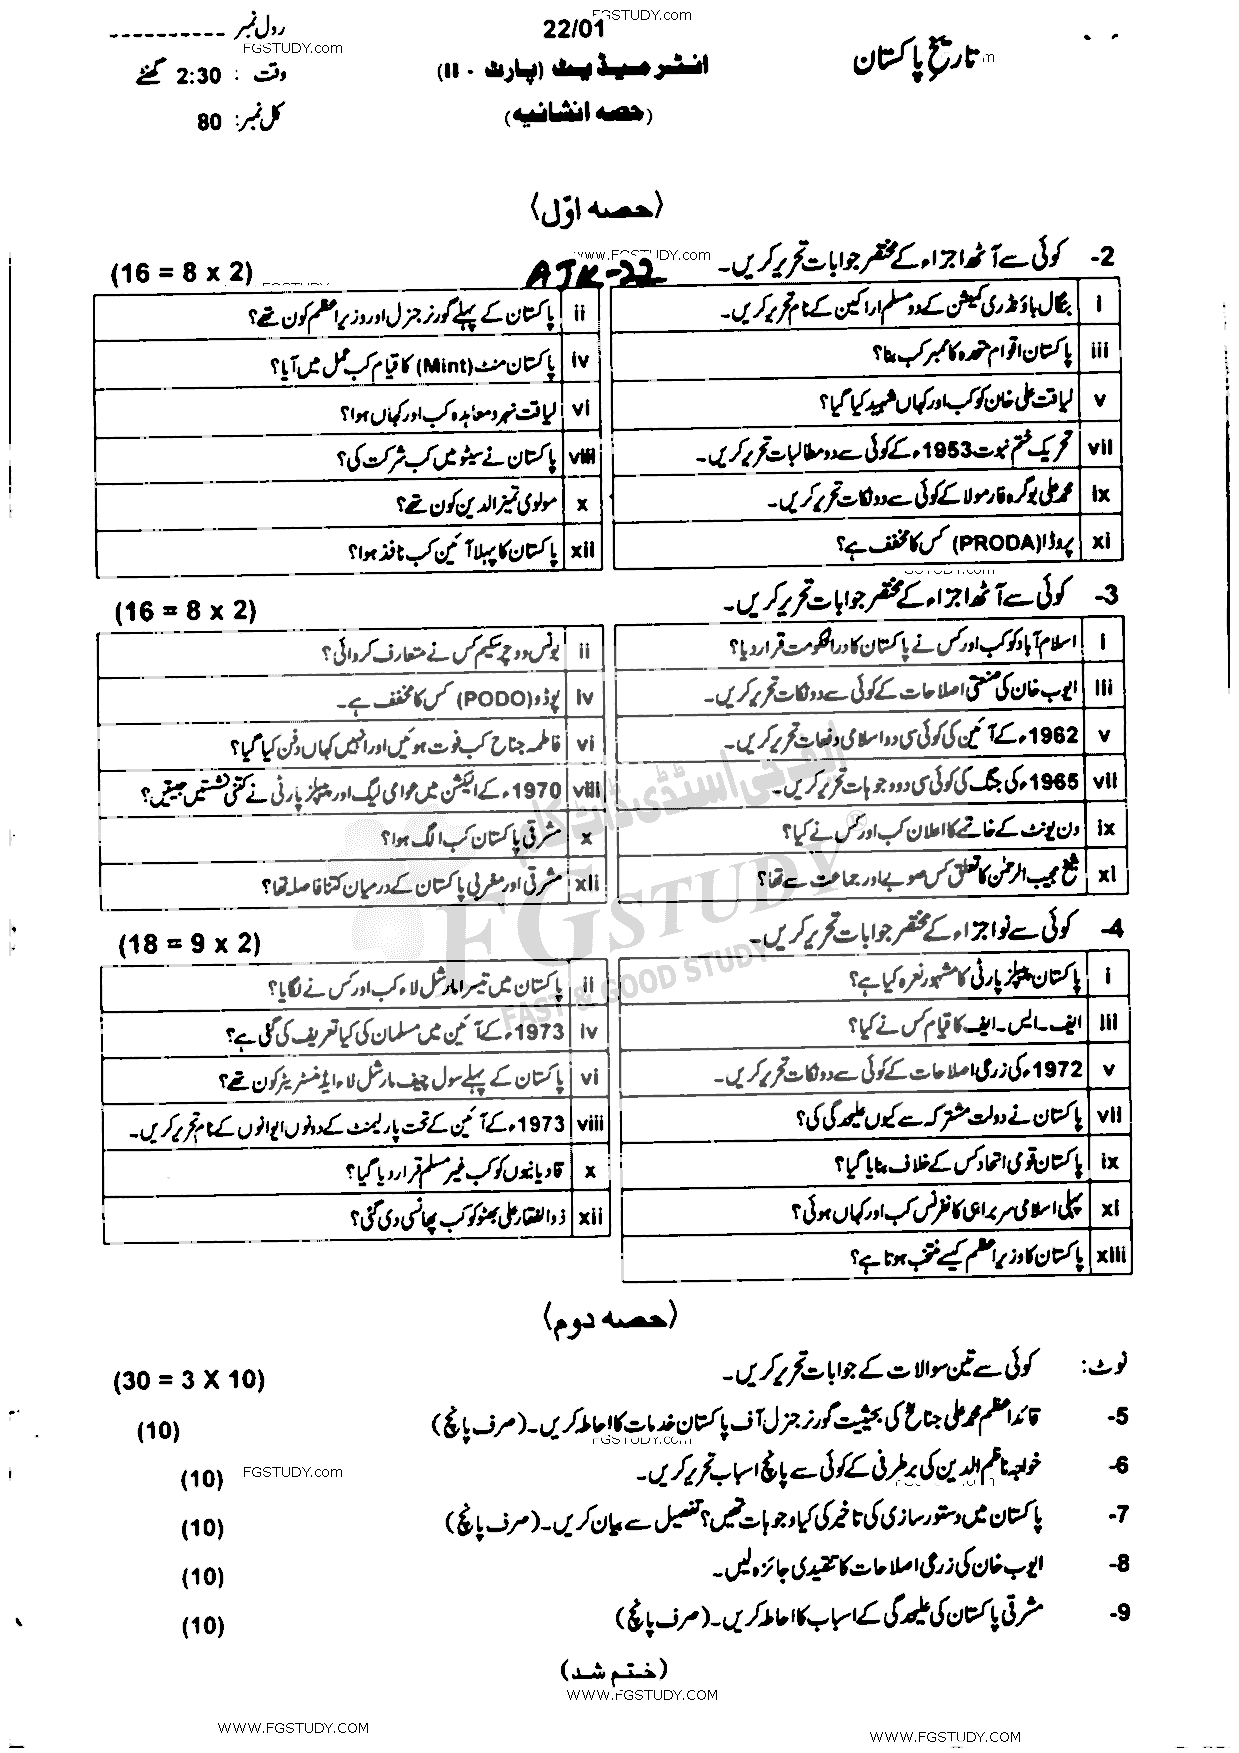 FGSTUDY.com
22/01
رول نمبر ----------
FGSTUDY.com
تاریخ پاکستان
انٹر میڈیٹ (پارٹ - II)
وقت : 2:30 گھنٹے
(حصہ انشائیہ)
کل نمبر: 80
(حصہ اوّل)
2- کوئی سے آٹھ اجزاء کے مختصر جوابات تحریر کریں۔ www.FGSTUDY.com AJK-22 (16 = 8 x 2)
i بنگال باؤنڈری کمیشن کے دو مسلم اراکین کے نام تحریر کریں۔
ii پاکستان کے پہلے گورنر جنرل اور وزیر اعظم کون تھے؟
iii پاکستان اقوام متحدہ کا ممبر کب بنا؟
iv پاکستان منٹ (Mint) کا قیام کب عمل میں آیا؟
v لیاقت علی خان کو کب اور کہاں شہید کیا گیا؟
vi لیاقت نہرو معاہدہ کب اور کہاں ہوا؟
vii تحریک ختم نبوت 1953ء کے کوئی سے دو مطالبات تحریر کریں۔
viii پاکستان نے سیٹو میں کب شرکت کی؟
ix محمد علی بوگرہ فارمولا کے کوئی سے دو نکات تحریر کریں۔
x مولوی تمیز الدین کون تھے؟
xi پروڈا (PRODA) کس کا مخفف ہے؟
xii پاکستان کا پہلا آئین کب نافذ ہوا؟
3- کوئی سے آٹھ اجزاء کے مختصر جوابات تحریر کریں۔ (16 = 8 x 2)
i اسلام آباد کو کب اور کس نے پاکستان کا دارالحکومت قرار دیا؟
ii بونس ووچر سکیم کس نے متعارف کروائی؟
iii ایوب خان کی صنعتی اصلاحات کے کوئی سے دو نکات تحریر کریں۔
iv پوڈو (PODO) کس کا مخفف ہے۔
v 1962ء کے آئین کی کوئی سی دو اسلامی دفعات تحریر کریں۔
vi فاطمہ جناح کب فوت ہوئیں اور انہیں کہاں دفن کیا گیا؟
vii 1965ء کی جنگ کی کوئی سی دو وجوہات تحریر کریں۔
viii 1970ء کے الیکشن میں عوامی لیگ اور پیپلز پارٹی نے کتنی نشستیں جیتیں؟
ix ون یونٹ کے خاتمے کا اعلان کب اور کس نے کیا؟
x مشرقی پاکستان کب الگ ہوا؟
xi شیخ مجیب الرحمٰن کا تعلق کس صوبے اور جماعت سے تھا؟
xii مشرقی اور مغربی پاکستان کے درمیان کتنا فاصلہ تھا؟
ایف جی اسٹڈی ڈاٹ کام
FGSTUDY
FAST & GOOD STUDY
4- کوئی سے نو اجزاء کے مختصر جوابات تحریر کریں۔ (18 = 9 x 2)
i پاکستان پیپلز پارٹی کا مشہور نعرہ کیا ہے؟
ii پاکستان میں تیسرا مارشل لاء کب اور کس نے لگایا؟
iii ایف۔ایس۔ایف کا قیام کس نے کیا؟
iv 1973ء کے آئین میں مسلمان کی کیا تعریف کی گئی ہے؟
v 1972ء کی زرعی اصلاحات کے کوئی سے دو نکات تحریر کریں۔
vi پاکستان کے پہلے سول چیف مارشل لاء ایڈمنسٹریٹر کون تھے؟
vii پاکستان نے دولت مشترکہ سے کیوں علیحدگی کی؟
viii 1973ء کے آئین کے تحت پارلیمنٹ کے دونوں ایوانوں کے نام تحریر کریں۔
ix پاکستان قومی اتحاد کس کے خلاف بنایا گیا؟
x قادیانیوں کو کب غیر مسلم قرار دیا گیا؟
xi پہلی اسلامی سربراہی کانفرنس کب اور کہاں ہوئی؟
xii ذوالفقار علی بھٹو کو کب پھانسی دی گئی؟
xiii پاکستان کا وزیر اعظم کیسے منتخب ہوتا ہے؟
(حصہ دوم)
نوٹ: کوئی سے تین سوالات کے جوابات تحریر کریں۔ (30 = 3 X 10)
5- قائد اعظم محمد علی جناحؒ کی بحیثیت گورنر جنرل آف پاکستان خدمات کا احاطہ کریں۔ (صرف پانچ) (10)
FGSTUDY.com
6- خواجہ ناظم الدین کی برطرفی کے کوئی سے پانچ اسباب تحریر کریں۔ FGSTUDY.com (10)
7- پاکستان میں دستور سازی کی تاخیر کی کیا وجوہات تھیں؟ تفصیل سے بیان کریں۔ (صرف پانچ) (10)
8- ایوب خان کی زرعی اصلاحات کا تنقیدی جائزہ لیں۔ (10)
9- مشرقی پاکستان کی علیحدگی کے اسباب کا احاطہ کریں۔ (صرف پانچ) (10)
(ختم شد)
WWW.FGSTUDY.COM
WWW.FGSTUDY.COM
WWW.FGSTUDY.COM